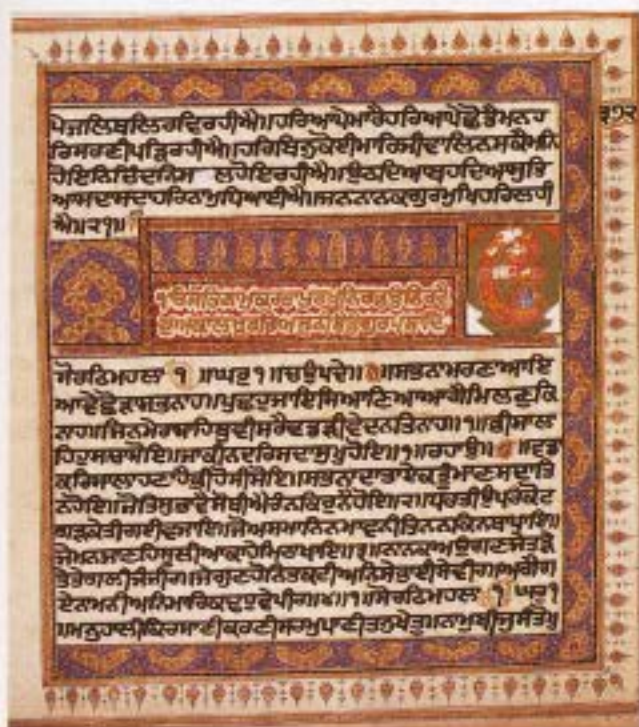 ਪੇਜਲਿਥਲਿਰਵਿਰਹੀਐ॥ਹਰਿਆਪੇਮਾਰੈਹਰਿਆਪੇਛੋਡੈਮਨਹ
ਰਿਸਰਣੀਪੜਿਰਹੀਐ॥ਹਰਿਬਿਨੁਕੋਈਮਾਰਿਜੀਵਾਲਿਨਸਕੈਮਨਿ
ਹੋਇਨਿਚਿੰਦਨਿਸ ਲਹੋਇਰਹੀਐ॥ਉਠਦਿਆਬਹਦਿਆਸੁਤਿ
ਆਸਦਾਸਦਾਹਰਿਨਾਮੁਧਿਆਈਐ॥ਜਨਨਾਨਕਗੁਰਮੁਖਿਹਰਿਲਹੀ
ਐ॥੨੧॥
੧ਓਸਤਿਨਾਮੁਕਰਤਾਪੁਰਖੁਨਿਰਭਉਨਿਰਵੈ
ਸੋਰਠਿਮਹਲਾ ੧ ॥ਘਰੁ ੧॥ਚਉਪਦੇ॥ ॥ਸਭਨਾਮਰਣਾਆਇ
ਆਵੇਛੋੜਾਸਭਨਾਹ॥ਪੁਛਹੁਜਾਇਸਿਆਣਿਆਆਗੈਮਿਲਣੁਕਿ
ਨਾਹ॥ਜਿਨਮੇਰਾਸਾਹਿਬੁਵੀਸਰੈਵਡੜੀਵੇਦਨਤਿਨਾਹ॥੧॥ਭੀਸਾਲਾ
ਹਿਹੁਸਾਚਾਸੋਇ॥ਜਾਕੀਨਦਰਿਸਦਾਸੁਖੁਹੋਇ॥੧॥ਰਹਾਉ॥ ॥ਵਡਾ
ਕਰਿਸਾਲਾਹਣਾਹੈਭੀਹੋਸੀਸੋਇ॥ਸਭਨਾਦਾਤਾਏਕੁਤੂਮਾਣਸਦਾਤਿ
ਨਹੋਇ॥ਜੋਤਿਸੁਭਾਵੈਸੋਥੀਐਰੰਨਕਿਰੁੰਨੈਹੋਇ॥੨॥ਧਰਤੀਉਪਰਿਕੋਟ
ਗੜਕੇਤੀਗਈਵਜਾਇ॥ਜੋਅਸਮਾਨਿਨਮਾਵਨੀਤਿਨਨਕਿਨਥਾਪਾਇ॥
ਜੇਮਨਜਾਣਹਿਸੂਲੀਆਕਾਹੇਮਿਠਾਖਾਇ॥੩॥ਨਾਨਕਅਉਗਣਜੇਤੜੇ
ਤੇਤੇਗਲੀਜੰਜੀਰ॥ਜੇਗੁਣਹੋਨਿਤਕਟੀਅਨਿਸੇਭਾਈਸੇਵੀਰ॥ਅਗੈਗ
ਏਨਮਨੀਅਨਿਮਾਰਿਕਢਹੁਵੇਪੀਰ॥੪॥੧॥ਸੋਰਠਿਮਹਲਾ ੧ ਘਰੁ੧
॥ਮਨੁਹਾਲੀਕਿਰਸਾਣੀਕਰਣੀਸਰਮੁਪਾਣੀਤਨੁਖੇਤੁ॥ਨਾਮੁਬੀਜੁਸੰਤੋਖੁ